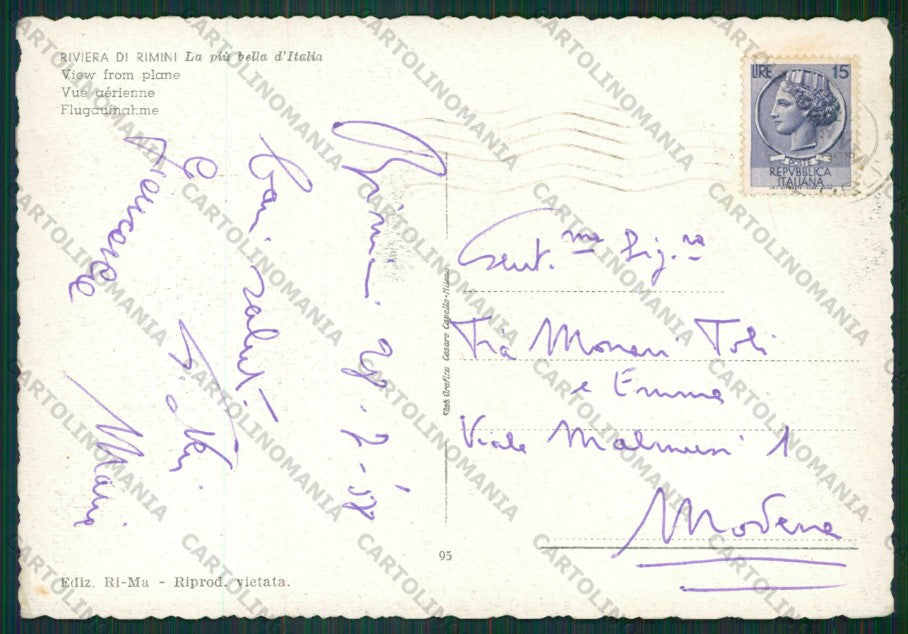 RIVIERA DI RIMINI La più bella d'Italia
View from plane
Vue aérienne
Flugaufnahme
LIRE 15
POSTE
REPVBBLICA
ITALIANA
Rimini. 28-2-58
Cari saluti
e
Mario
Gent.ma Sig.ra
Tia Monari Toli
e Emma
Viale 1
Modena
Stab. Grafico Cesare Capello - Milano
95
Ediz. Ri-Ma - Riprod. vietata.
CARTOLINOMANIA